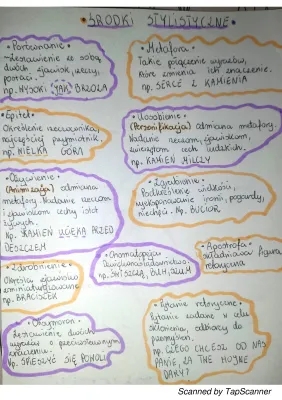 • ŚRODKI STYLISTYCZNE •
• Porównanie -
zestawienie ze sobą
dwóch zjawisk, rzeczy,
postaci.
np. WYSOKI JAK BRZOZA
• Metafora -
Takie połączenie wyrazów,
które zmienia ich znaczenie.
np. SERCE Z KAMIENIA
• Epitet -
Określenie rzeczownika,
najczęściej przymiotnik.
np. WIELKA GÓRA
• Uosobienie -
(Personifikacja) odmiana metafory.
Nadanie rzeczom, zjawiskom,
zwierzętom cech ludzkich.
np. KAMIEŃ MILCZY
• Ożywienie -
(Animizacja) odmiana
metafory. Nadanie rzeczom
i zjawiskom cechy istot
żywych.
Np. KAMIEŃ UCIEKA PRZED
DESZCZEM
• Zgrubienie -
Podkreślenie wielkości,
ironii, pogardy,
niechęci. Np. BUCIOR
• Onomatopeja -
Dźwiękonaśladownictwo.
np. SZUM
• Apostrofa -
figura
retoryczna
• Zdrobnienie -
Określa zjawisko
np. BRACISZEK
• Oksymoron -
Zestawienie dwóch
wyrazów o przeciwstawnym
znaczeniu.
Np. SPIESZYĆ SIĘ POWOLI
• Pytanie retoryczne -
Pytanie zadane w celu
skłonienia odbiorcy do
przemyśleń.
np. CZEGO CHCESZ OD NAS
PANIE, ZA TWE HOJNE
DARY?
Scanned by TapScanner